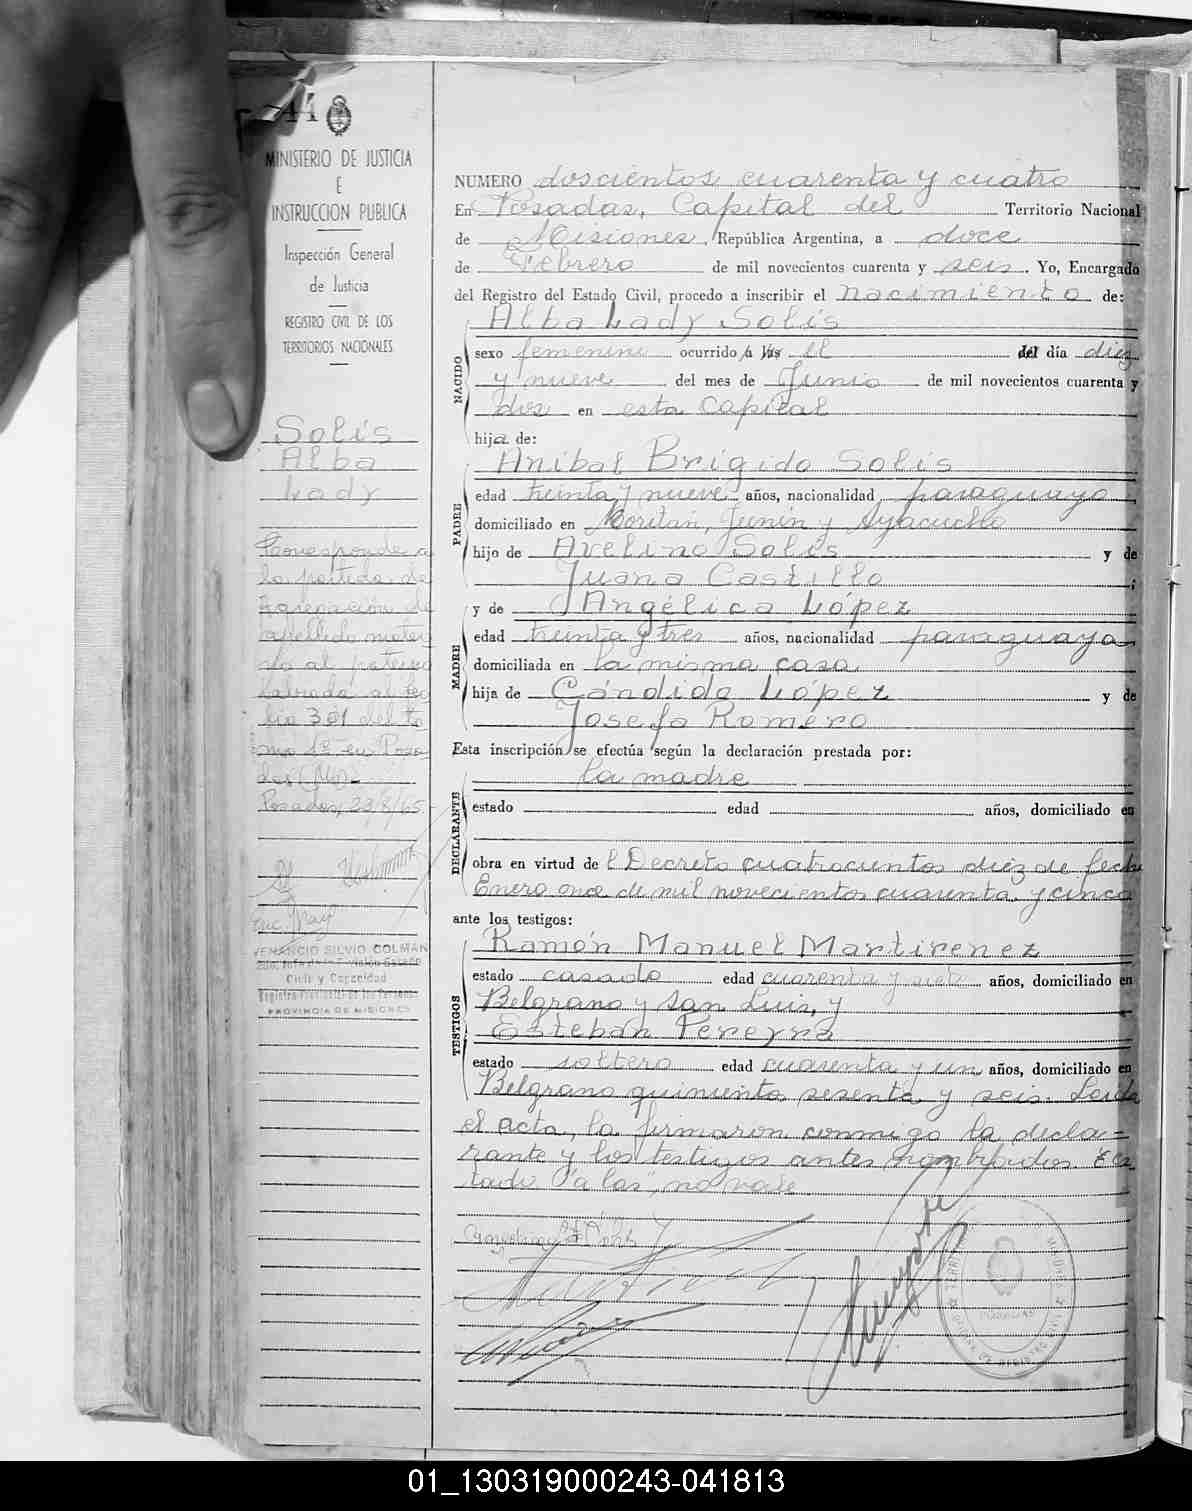 44
MINISTERIO DE JUSTICIA
E
INSTRUCCION PUBLICA
Inspección General
de Justicia
REGISTRO CIVIL DE LOS
TERRITORIOS NACIONALES
Solís
Alba
Lady
Corresponde a
la partida de
agregación de
apellido mater
no al paterno
labrada al fo
lio 301 del to
mo 1º en Posa
das (Mnes)
Posadas, 23/8/65
VENANCIO SILVIO COLMAN
Civil y Capacidad
PROVINCIA DE MISIONES
NUMERO doscientos cuarenta y cuatro
En Posadas, Capital del Territorio Nacional
de Misiones, República Argentina, a doce
de Febrero de mil novecientos cuarenta y seis. Yo, Encargado
del Registro del Estado Civil, procedo a inscribir el nacimiento de:
Alba Lady Solís
NACIDO
sexo femenino ocurrido a las el del día diez
y nueve del mes de Junio de mil novecientos cuarenta y
dos en esta Capital
hija de:
Aníbal Brígido Solís
PADRE
edad treinta y nueve años, nacionalidad paraguayo
domiciliado en Junín y Ayacucho
hijo de Avelino Solís y de
Juana Castillo ;
y de Angélica López
MADRE
edad treinta y tres años, nacionalidad paraguaya
domiciliada en la misma casa
hija de Cándido López y de
Josefa Romero
Esta inscripción se efectúa según la declaración prestada por:
la madre
DECLARANTE
estado edad años, domiciliado en
obra en virtud del Decreto cuatrocientos diez de fecha
Enero once de mil novecientos cuarenta y cinco
ante los testigos:
Ramón Manuel Martirenez
TESTIGOS
estado casado edad cuarenta y siete años, domiciliado en
Belgrano y San Luis, y
Esteban Pereyra
estado soltero edad cuarenta y un años, domiciliado en
Belgrano quinientos sesenta y seis. Leída
el acta, la firmaron conmigo la decla-
rante y los testigos antes nombrados. Tes
tado "a las", no vale.
01_130319000243-041813